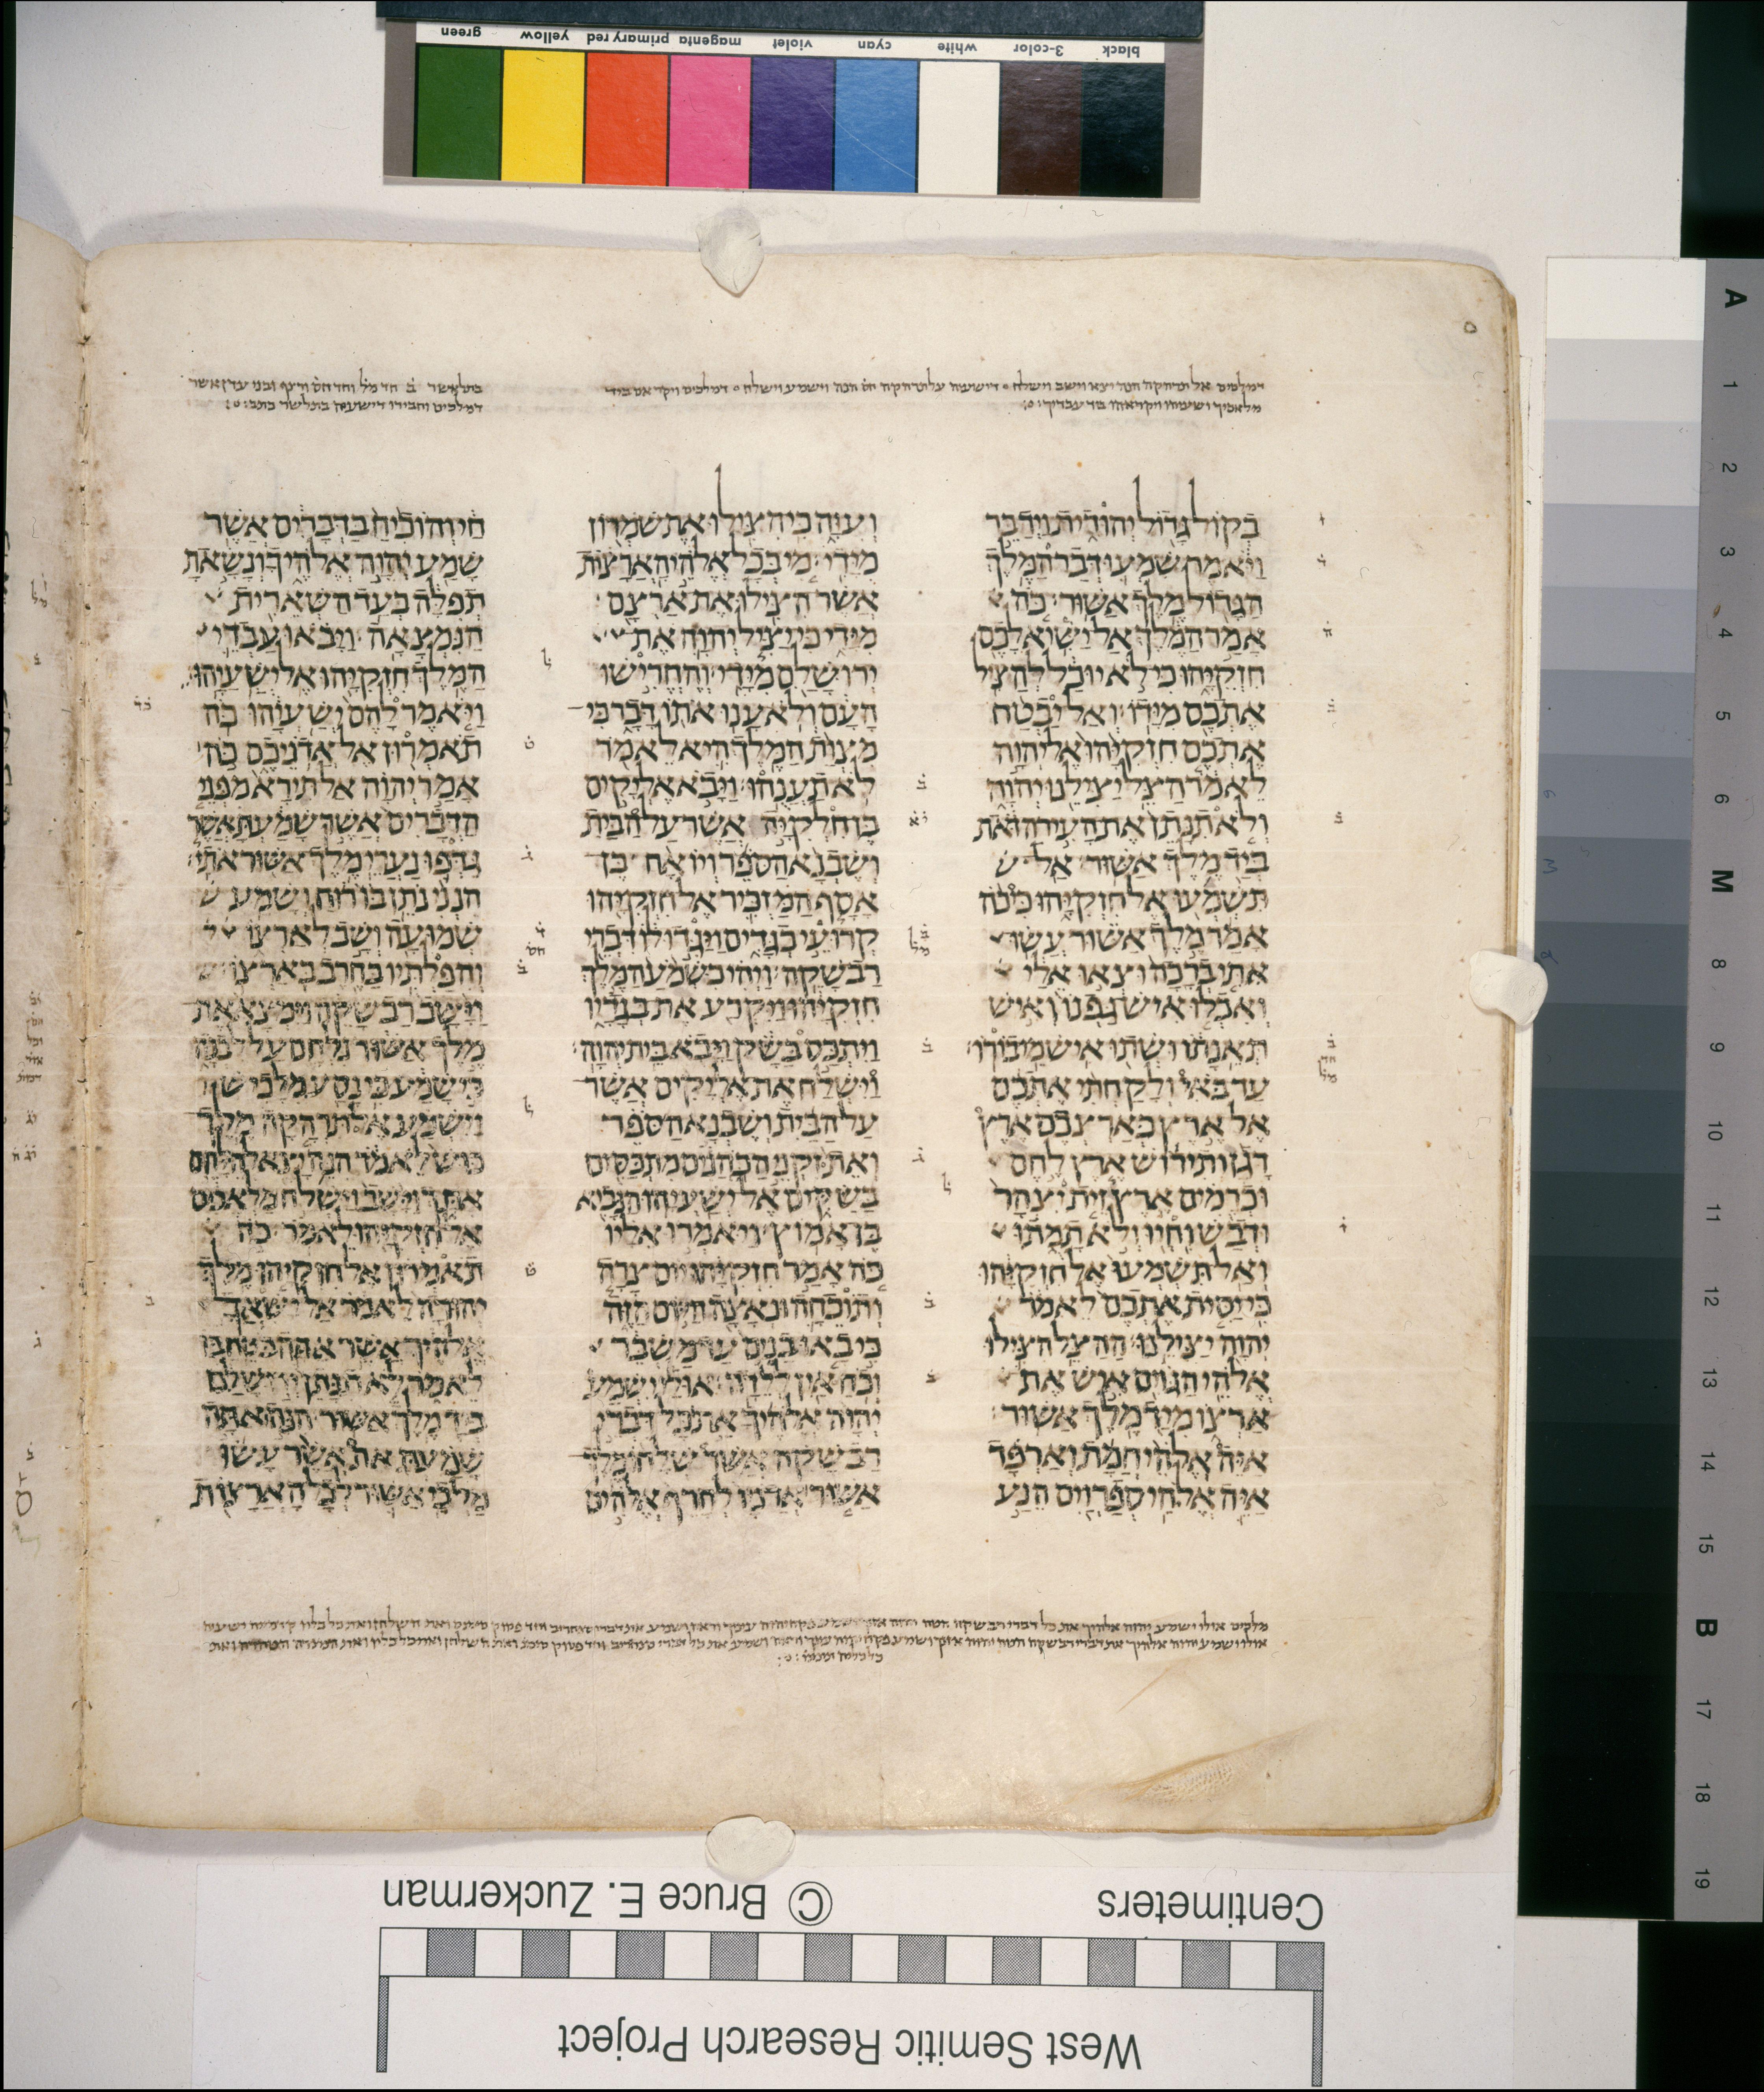 green yellow primary red magenta violet cyan white 3-color black
דמלכים אל תרהקה הנה יצא וישב וישלח דישעיה על תרהקה
בתלאשר ב חד מל וחד חס
בקול גדול יהודית וידבר
ויאמר שמעו דבר המלך
הגדול מלך אשור כה
אמר המלך אל ישיא לכם
חזקיהו כי לא יוכל להציל
אתכם מידו ואל יבטח
אתכם חזקיהו אל יהוה
לאמר הצל יצילנו יהוה
ולא תנתן את העיר הזאת
ביד מלך אשור אל
תשמעו אל חזקיהו כי כה
אמר מלך אשור עשו
אתי ברכה וצאו אלי
ואכלו איש גפנו ואיש
תאנתו ושתו איש מי בורו
עד באי ולקחתי אתכם
אל ארץ כארצכם ארץ
דגן ותירוש ארץ לחם
וכרמים ארץ זית יצהר
ודבש וחיו ולא תמתו
ואל תשמעו אל חזקיהו
כי יסית אתכם לאמר
יהוה יצילנו ההצל הצילו
אלהי הגוים איש את
ארצו מיד מלך אשור
איה אלהי חמת וארפד
איה אלהי ספרוים הנע
ועוה כי הצילו את שמרון
מידי מי בכל אלהי הארצות
אשר הצילו את ארצם
מידי כי יציל יהוה את
ירושלם מידי והחרישו
העם ולא ענו אתו דבר כי
מצות המלך היא לאמר
לא תענהו ויבא אליקים
בן חלקיה אשר על הבית
ושבנא הספר ויואח בן
אסף המזכיר אל חזקיהו
קרועי בגדים ויגדו לו דברי
רבשקה ויהי כשמע המלך
חזקיהו ויקרע את בגדיו
ויתכס בשק ויבא בית יהוה
וישלח את אליקים אשר
על הבית ושבנא הספר
ואת זקני הכהנים מתכסים
בשקים אל ישעיהו הנביא
בן אמוץ ויאמרו אליו
כה אמר חזקיהו יום צרה
ותוכחה ונאצה היום הזה
כי באו בנים עד משבר
וכח אין ללדה אולי ישמע
יהוה אלהיך את כל דברי
רבשקה אשר שלחו מלך
אשור אדניו לחרף אלהים
חי והוכיח בדברים אשר
שמע יהוה אלהיך ונשאת
תפלה בעד השארית
הנמצאה ויבאו עבדי
המלך חזקיהו אל ישעיהו
ויאמר להם ישעיהו כה
תאמרון אל אדניכם כה
אמר יהוה אל תירא מפני
הדברים אשר שמעת אשר
גדפו נערי מלך אשור אתי
הנני נתן בו רוח ושמע
שמועה ושב לארצו
והפלתיו בחרב בארצו
וישב רבשקה וימצא את
מלך אשור נלחם על לבנה
כי שמע כי נסע מלכיש
וישמע אל תרהקה מלך
כוש לאמר הנה יצא להלחם
אתך וישב וישלח מלאכים
אל חזקיהו לאמר כה
תאמרון אל חזקיהו מלך
יהודה לאמר אל ישאך
אלהיך אשר אתה בטח בו
לאמר לא תנתן ירושלם
ביד מלך אשור הנה אתה
שמעת את אשר עשו
מלכי אשור לכל הארצות
A 1 2 3 4 5 6 M 8 9 10 11 12 13 14 15 B 17 18 19
© Bruce E. Zuckerman
Centimeters
West Semitic Research Project